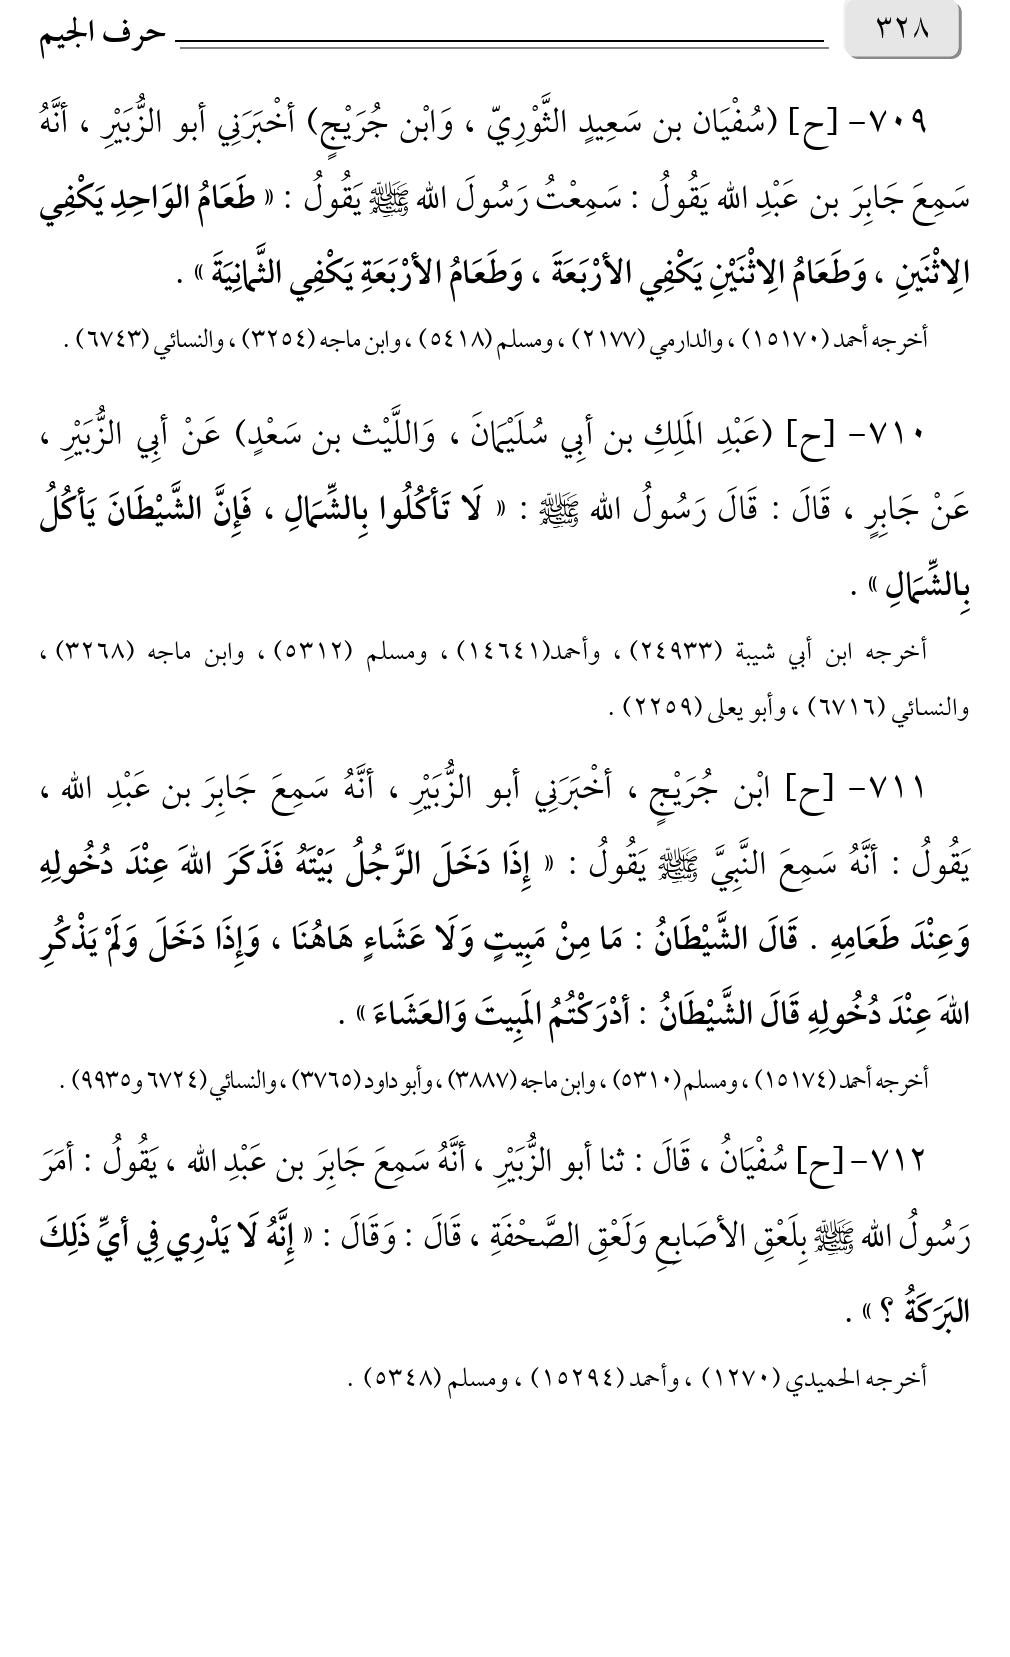 ٣٢٨ حرف الجيم
٧٠٩- [ح] (سُفْيَان بن سَعِيدٍ الثَّوْرِيّ ، وَابْن جُرَيْجٍ) أخْبَرَنِي أبو الزُّبَيْرِ ، أنَّهُ
سَمِعَ جَابِرَ بن عَبْدِ الله يَقُولُ : سَمِعْتُ رَسُولَ الله ﷺ يَقُولُ : « طَعَامُ الوَاحِدِ يَكْفِي
الِاثْنَينِ ، وَطَعَامُ الِاثْنَيْنِ يَكْفِي الأرْبَعَةَ ، وَطَعَامُ الأرْبَعَةِ يَكْفِي الثَّمانِيَةَ » .
أخرجه أحمد (١٥١٧٠) ، والدارمي (٢١٧٧) ، ومسلم (٥٤١٨) ، وابن ماجه (٣٢٥٤) ، والنسائي (٦٧٤٣) .
٧١٠- [ح] (عَبْدِ المَلِكِ بن أبِي سُلَيْمَانَ ، وَاللَّيْث بن سَعْدٍ) عَنْ أبِي الزُّبَيْرِ ،
عَنْ جَابِرٍ ، قَالَ : قَالَ رَسُولُ الله ﷺ : « لَا تَأكُلُوا بِالشِّمَالِ ، فَإِنَّ الشَّيْطَانَ يَأكُلُ
بِالشِّمَالِ » .
أخرجه ابن أبي شيبة (٢٤٩٣٣) ، وأحمد(١٤٦٤١) ، ومسلم (٥٣١٢) ، وابن ماجه (٣٢٦٨) ،
والنسائي (٦٧١٦) ، وأبو يعلى (٢٢٥٩) .
٧١١- [ح] ابْن جُرَيْجٍ ، أخْبَرَنِي أبو الزُّبَيْرِ ، أنَّهُ سَمِعَ جَابِرَ بن عَبْدِ الله ،
يَقُولُ : أنَّهُ سَمِعَ النَّبِيَّ ﷺ يَقُولُ : « إِذَا دَخَلَ الرَّجُلُ بَيْتَهُ فَذَكَرَ اللهَ عِنْدَ دُخُولِهِ
وَعِنْدَ طَعَامِهِ . قَالَ الشَّيْطَانُ : مَا مِنْ مَبِيتٍ وَلَا عَشَاءٍ هَاهُنَا ، وَإِذَا دَخَلَ وَلَمْ يَذْكُرِ
اللهَ عِنْدَ دُخُولِهِ قَالَ الشَّيْطَانُ : أدْرَكْتُمُ المَبِيتَ وَالعَشَاءَ » .
أخرجه أحمد (١٥١٧٤) ، ومسلم (٥٣١٠) ، وابن ماجه (٣٨٨٧) ، وأبو داود (٣٧٦٥) ، والنسائي (٦٧٢٤ و٩٩٣٥) .
٧١٢- [ح] سُفْيَانُ ، قَالَ : ثنا أبو الزُّبَيْرِ ، أنَّهُ سَمِعَ جَابِرَ بن عَبْدِ الله ، يَقُولُ : أمَرَ
رَسُولُ الله ﷺ بِلَعْقِ الأصَابِعِ وَلَعْقِ الصَّحْفَةِ ، قَالَ : وَقَالَ : « إِنَّهُ لَا يَدْرِي فِي أيِّ ذَلِكَ
البَرَكَةُ ؟ » .
أخرجه الحميدي (١٢٧٠) ، وأحمد (١٥٢٩٤) ، ومسلم (٥٣٤٨) .